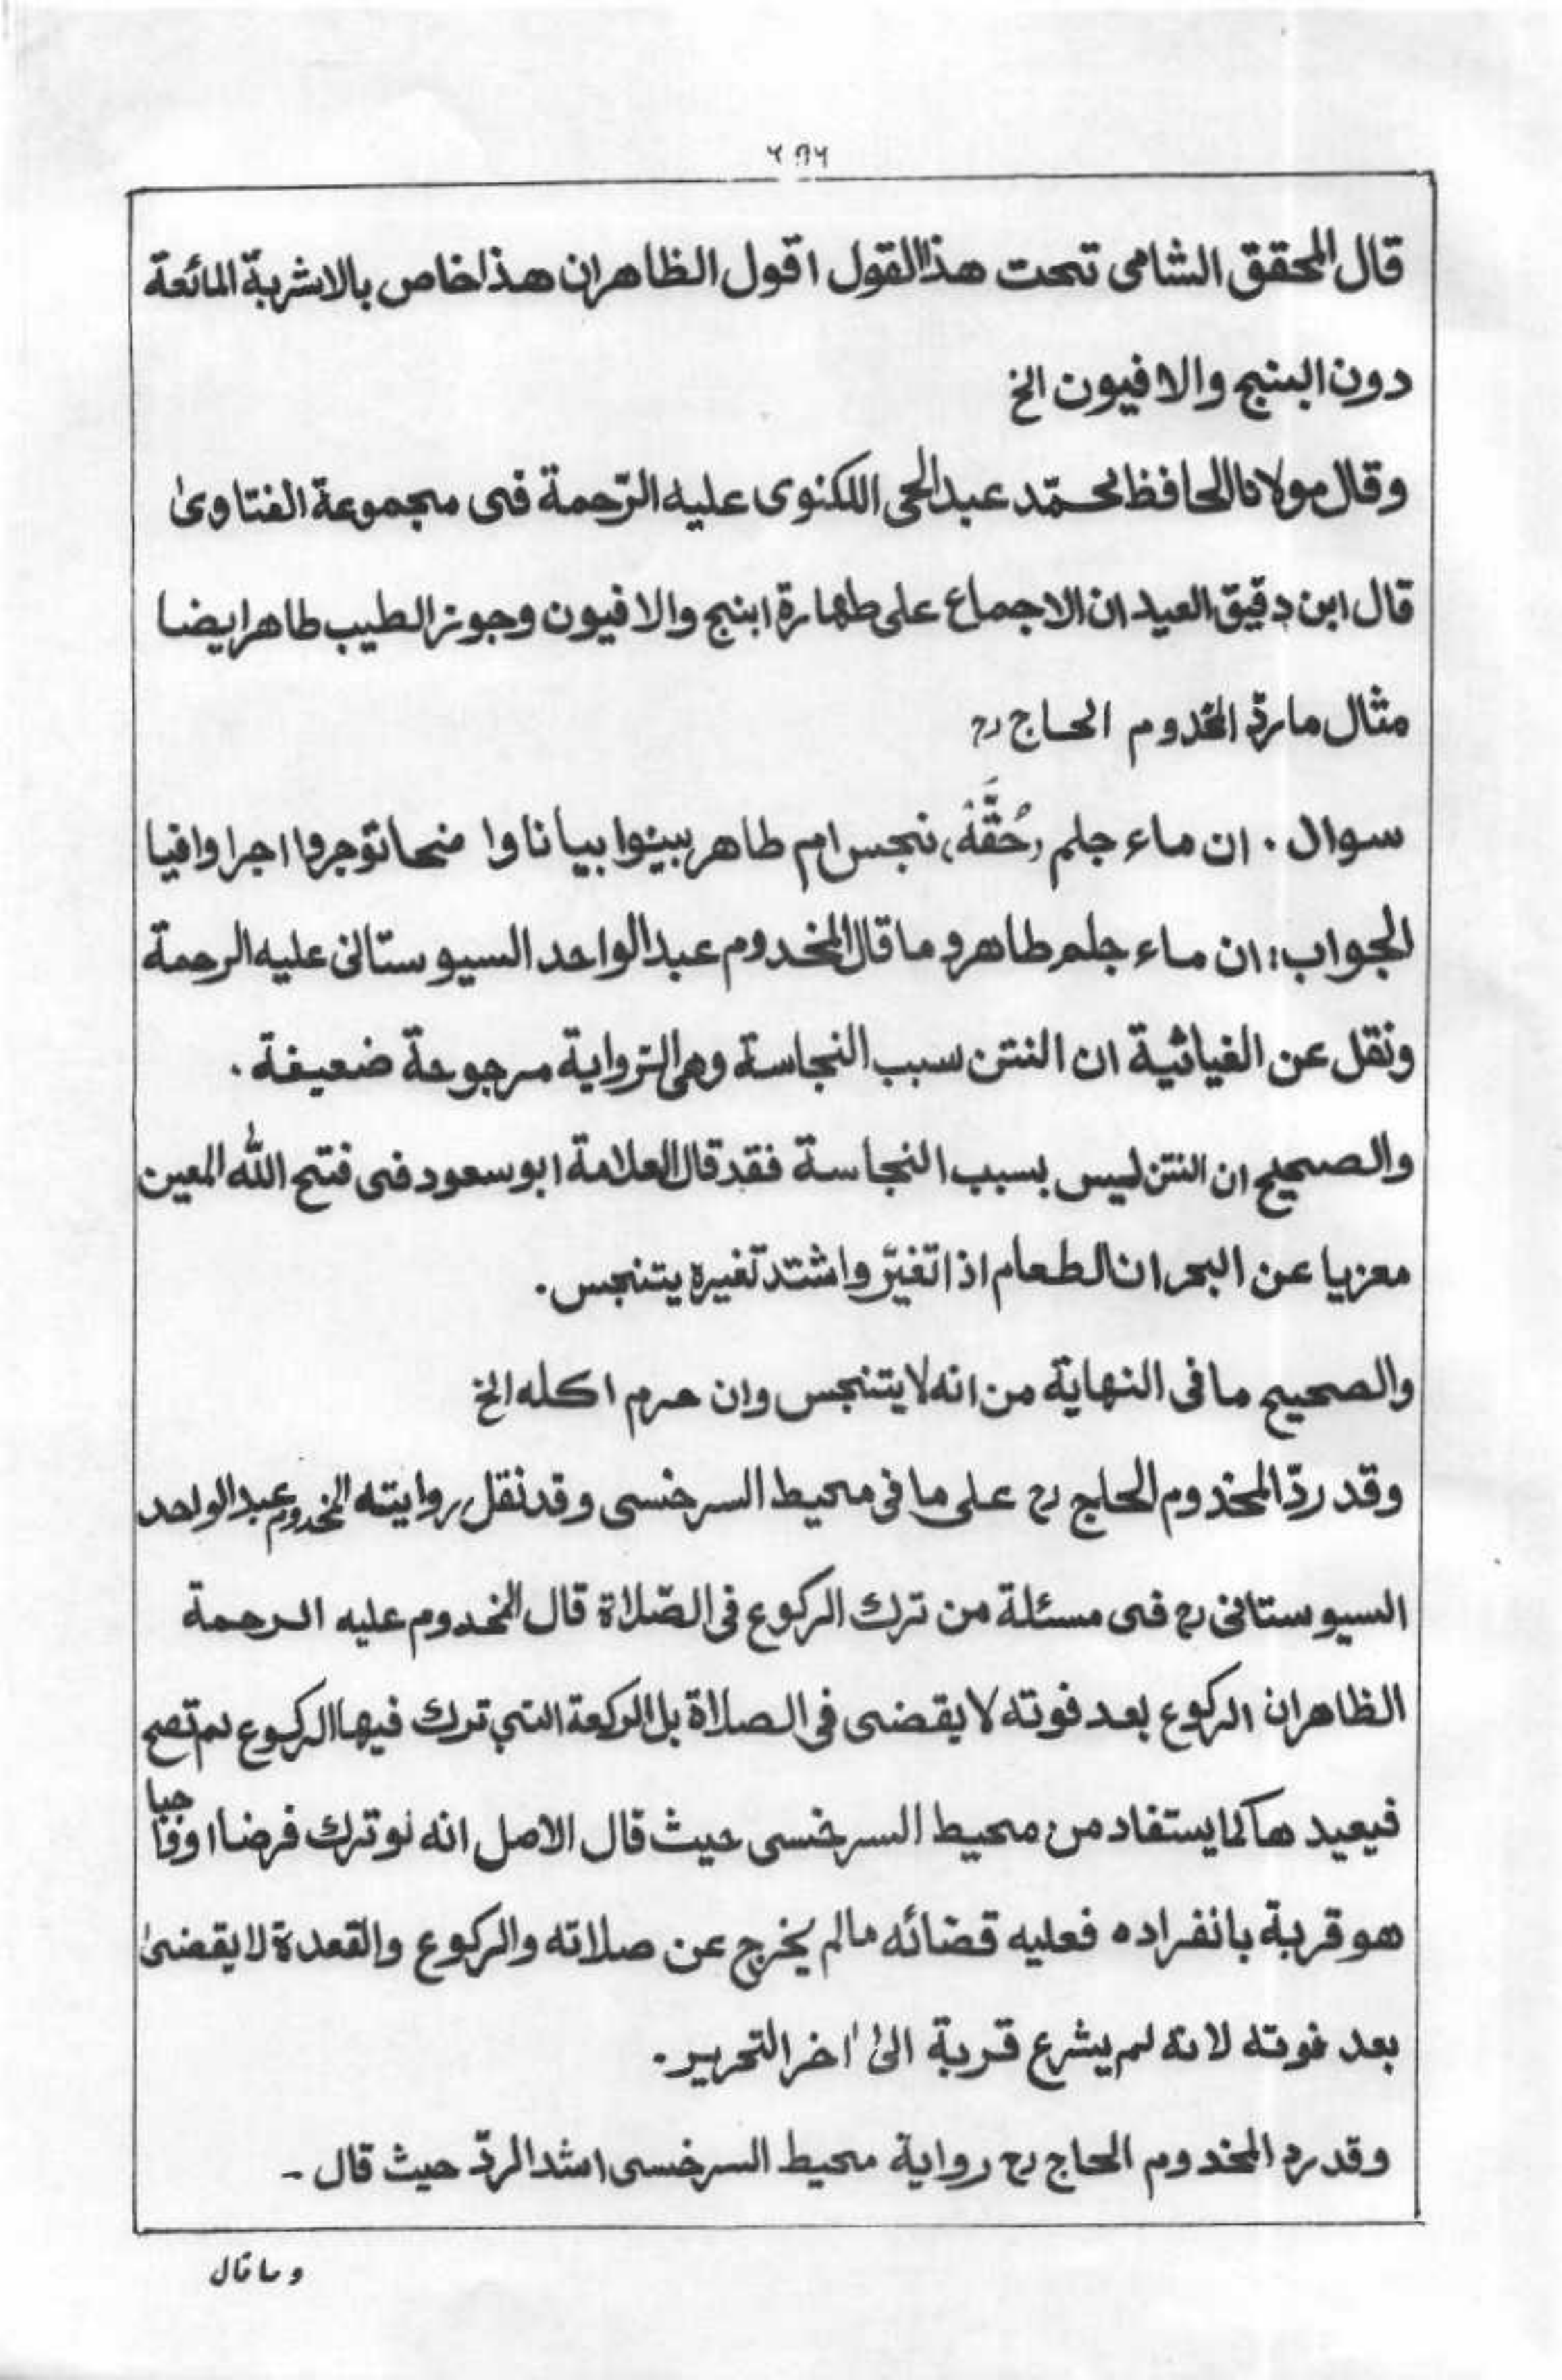 قال المحقق الشامی تحت هذا القول اقول الظاهر ان هذا خاص بالاشربة المائعة
دون البنج والافیون الخ
وقال مولانا الحافظ محمّد عبد الحی اللکنوی علیه الرّحمة فی مجموعة الفتاویٰ
قال ابن دقیق العید ان الاجماع علی طهارة ابنج والافیون وجوز الطیب طاهر ایضا
مثال ما ردّ المخدوم الحاج رح
سوال ۔ ان ماء جلم (حُقَّهُ) نجس ام طاهر بینوا بیانا وا ضحا توجروا اجرا وافیا
الجواب: ان ماء جلم طاهر و ما قال المخدوم عبد الواحد السیوستانی علیه الرحمة
ونقل عن الغیاثیة ان النتن سبب النجاسة وهی الرّوایة مرجوحة ضعیفة ۔
والصحیح ان النتن لیس بسبب النجاسة فقد قال العلامة ابو سعود فی فتح الله المعین
معزیا عن البحر ان الطعام اذا تغیّر واشتد تغیره یتنجس ۔
والصحیح ما فی النهایة من انه لا یتنجس وان حرم اکله الخ
وقد ردّ المخدوم الحاج رح علی ما فی محیط السرخسی وقد نقل روایته المخدوم عبد الواحد
السیوستانی رح فی مسئلة من ترك الرکوع فی الصّلاة قال المخدوم علیه الرحمة
الظاهر ان الرکوع بعد فوته لا یقضی فی الصلاة بل الرکعة التی ترك فیها الرکوع لم تصح
فیعید ها کما یستفاد من محیط السرخسی حیث قال الاصل انه لو ترك فرضا او واجبا
هو قربة بانفراده فعلیه قضائه مالم یخرج عن صلاته والرکوع والقعدة لا یقضیٰ
بعد فوته لانه لم یشرع قربة الیٰ اخر التحریر ۔
وقد رد المخدوم الحاج رح روایة محیط السرخسی اشد الردّ حیث قال ۔
وما قال